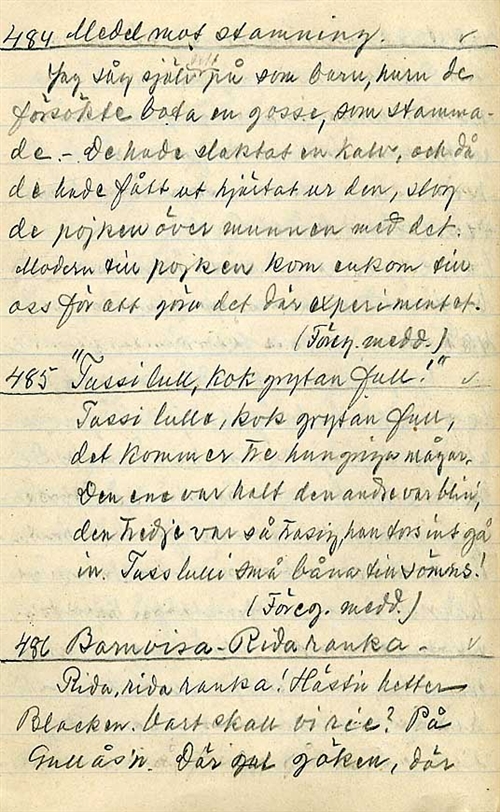 484 Medel mot stamning. v
Jag såg själv på som barn, huru de
försökte bota en gosse, som stamma-
de. - De hade slaktat en kalv, och då
de hade fått ut hjärtat ur den, slog
de pojken över munnen med det.
Modern till pojken kom enkom till
oss för att göra det där experimentet.
(Föreg. medd.)
485 "Tussilull, kok grytan full!" v
Tussi lulle, kok grytan full,
det kommer tre hungriga mågar.
Den ene var halt den andre var blin',
den tredje var så trasig, han tors int gå
in. Tuss lulli små båna till sömns!
(Föreg. medd.)
486 Barnvisa - Rida ranka - v
Rida, rida ranka! Hästn hetter
Blacken. Vart skall vi rie? På
Gullås'n. Där gal göken, där